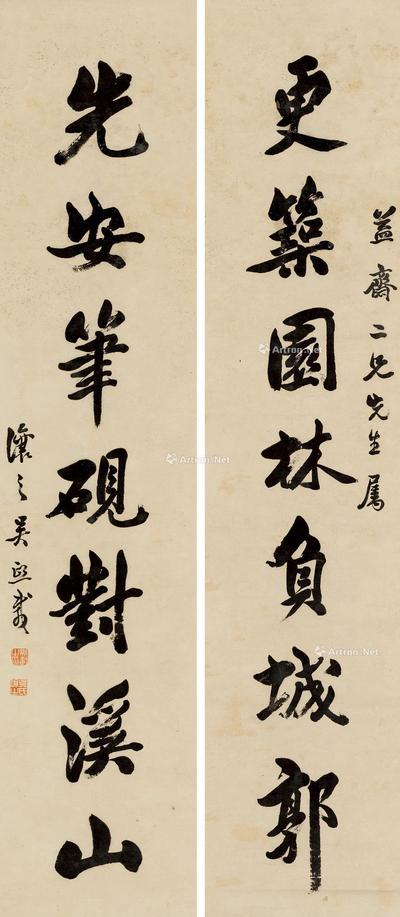 益齋二兄先生屬
更築園林負城郭
先安筆硯對溪山
讓之吳熙載
Artron.Net
Artron.Net
Artron.Net